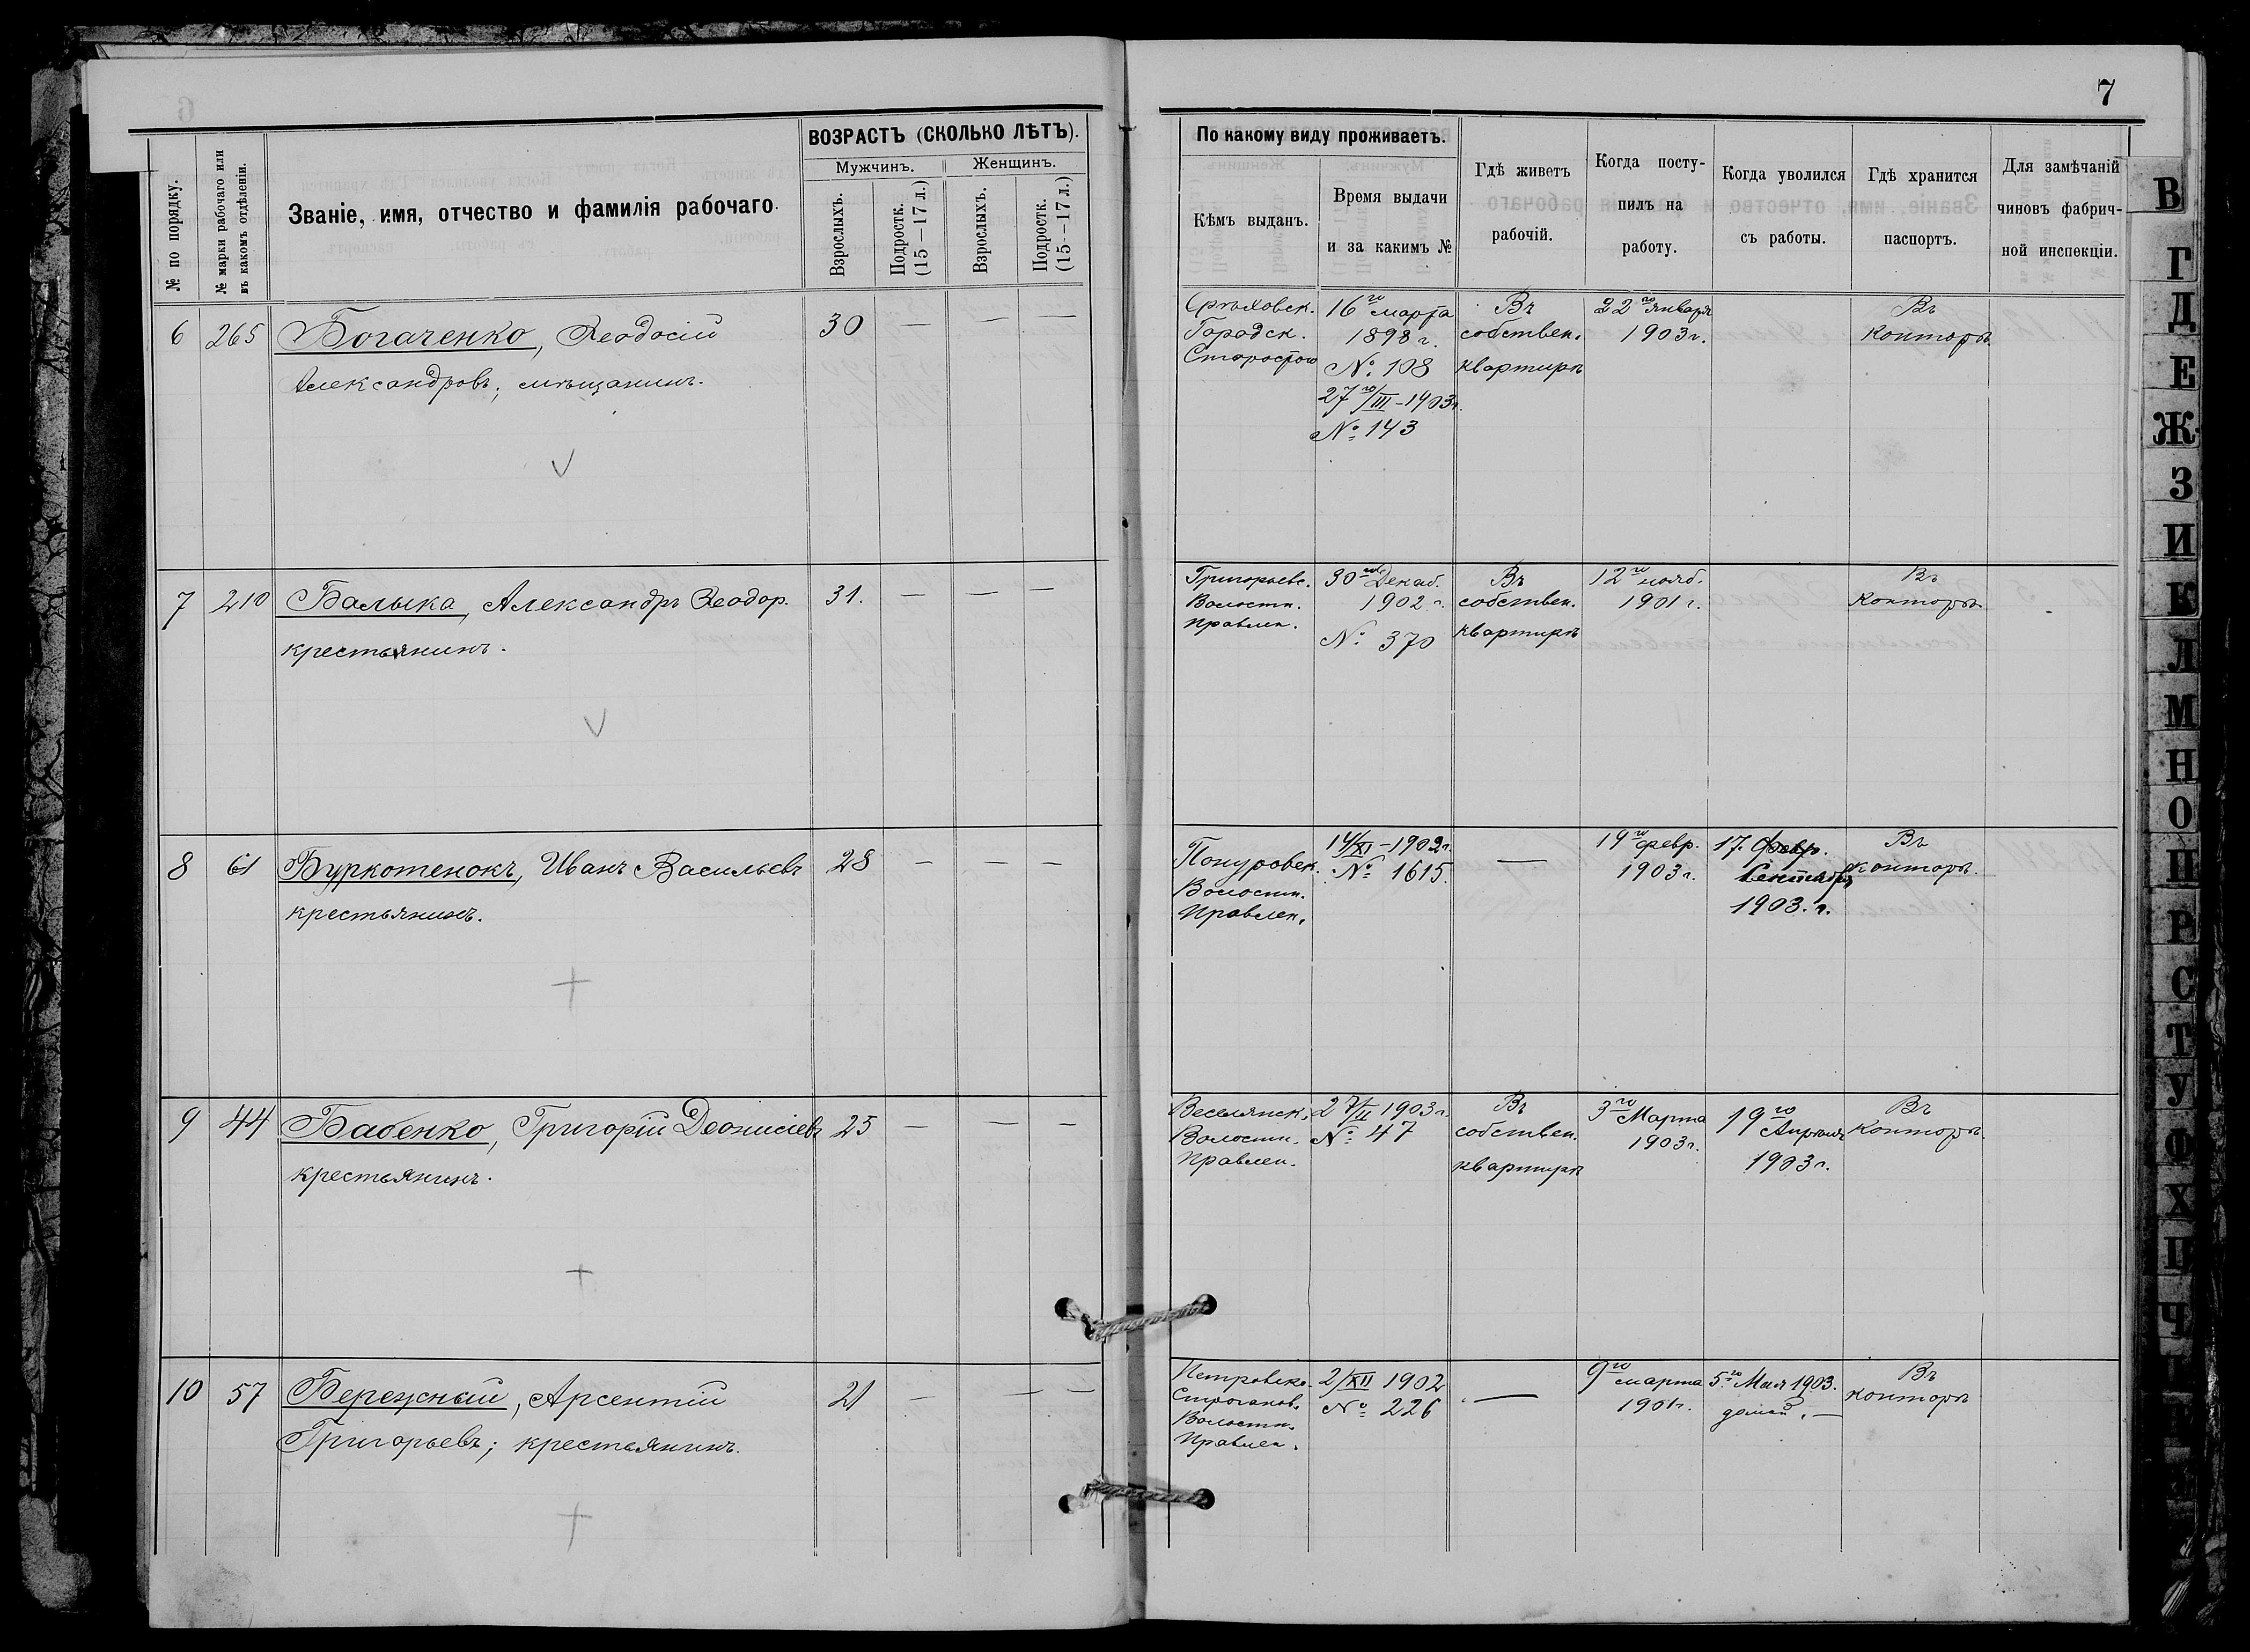 7
№ по порядку.
№ марки рабочаго или въ какомъ отдѣленіи.
Званіе, имя, отчество и фамилія рабочаго.
ВОЗРАСТЪ (СКОЛЬКО ЛѢТЪ).
Мужчинъ.
Женщинъ.
Взрослыхъ.
Подростк. (15—17 л.)
Взрослыхъ.
Подростк. (15—17 л.)
По какому виду проживаетъ.
Кѣмъ выданъ.
Время выдачи
и за какимъ №
Гдѣ живетъ
рабочій.
Когда посту-
пилъ на
работу.
Когда уволился
съ работы.
Гдѣ хранится
паспортъ.
Для замѣчаній
чиновъ фабрич-
ной инспекціи.
6 265 Богаченко, Ѳеодосій 30 — — —
Александровъ; мѣщанинъ.
Городск.
Старостою
16го марта
1898 г.
№ 108
27го/III–1903г.
№ 143
Въ
собствен.
квартирѣ
22го января
1903г.
Въ
Конторѣ
7 210 Балыка, Александръ Ѳеодор. 31. — — —
крестьянинъ.
Григорьевс.
Волостн.
правлен.
30го Декаб.
1902 г.
№ 370
Въ
собствен.
квартирѣ
12го нояб.
1901 г.
Въ
Конторѣ
8 61 Буркотенокъ, Иванъ Васильевъ 28 — — —
крестьянинъ.
Понуровск.
Волостн.
Правлен.
14/XI–1902г.
№ 1615.
—
19го февр.
1903г.
17. февр.
Сентября
1903. г.
Въ
конторѣ.
9 44 Бабенко, Григорій Деонисіевъ 23 — — —
крестьянинъ.
Веселянск.
Волостн.
Правлен.
27/II 1903г.
№ 47
Въ
собствен.
квартирѣ
3го Марта
1903г.
19го
Апрѣля
1903г.
Въ
Конторѣ.
10 57 Бережный, Арсентій 21 — — —
Григорьевъ; крестьянинъ.
Петровско-
Строганов.
Волостн.
Правлен.
2/XII 1902
№ 226
—
9го
марта
1901г.
5.го Мая 1903.
домой. —
Въ
конторѣ
В
Г
Д
Е
Ж
З
И
К
Л
М
Н
О
П
Р
С
Т
У
Ф
Х
Ц
Ч